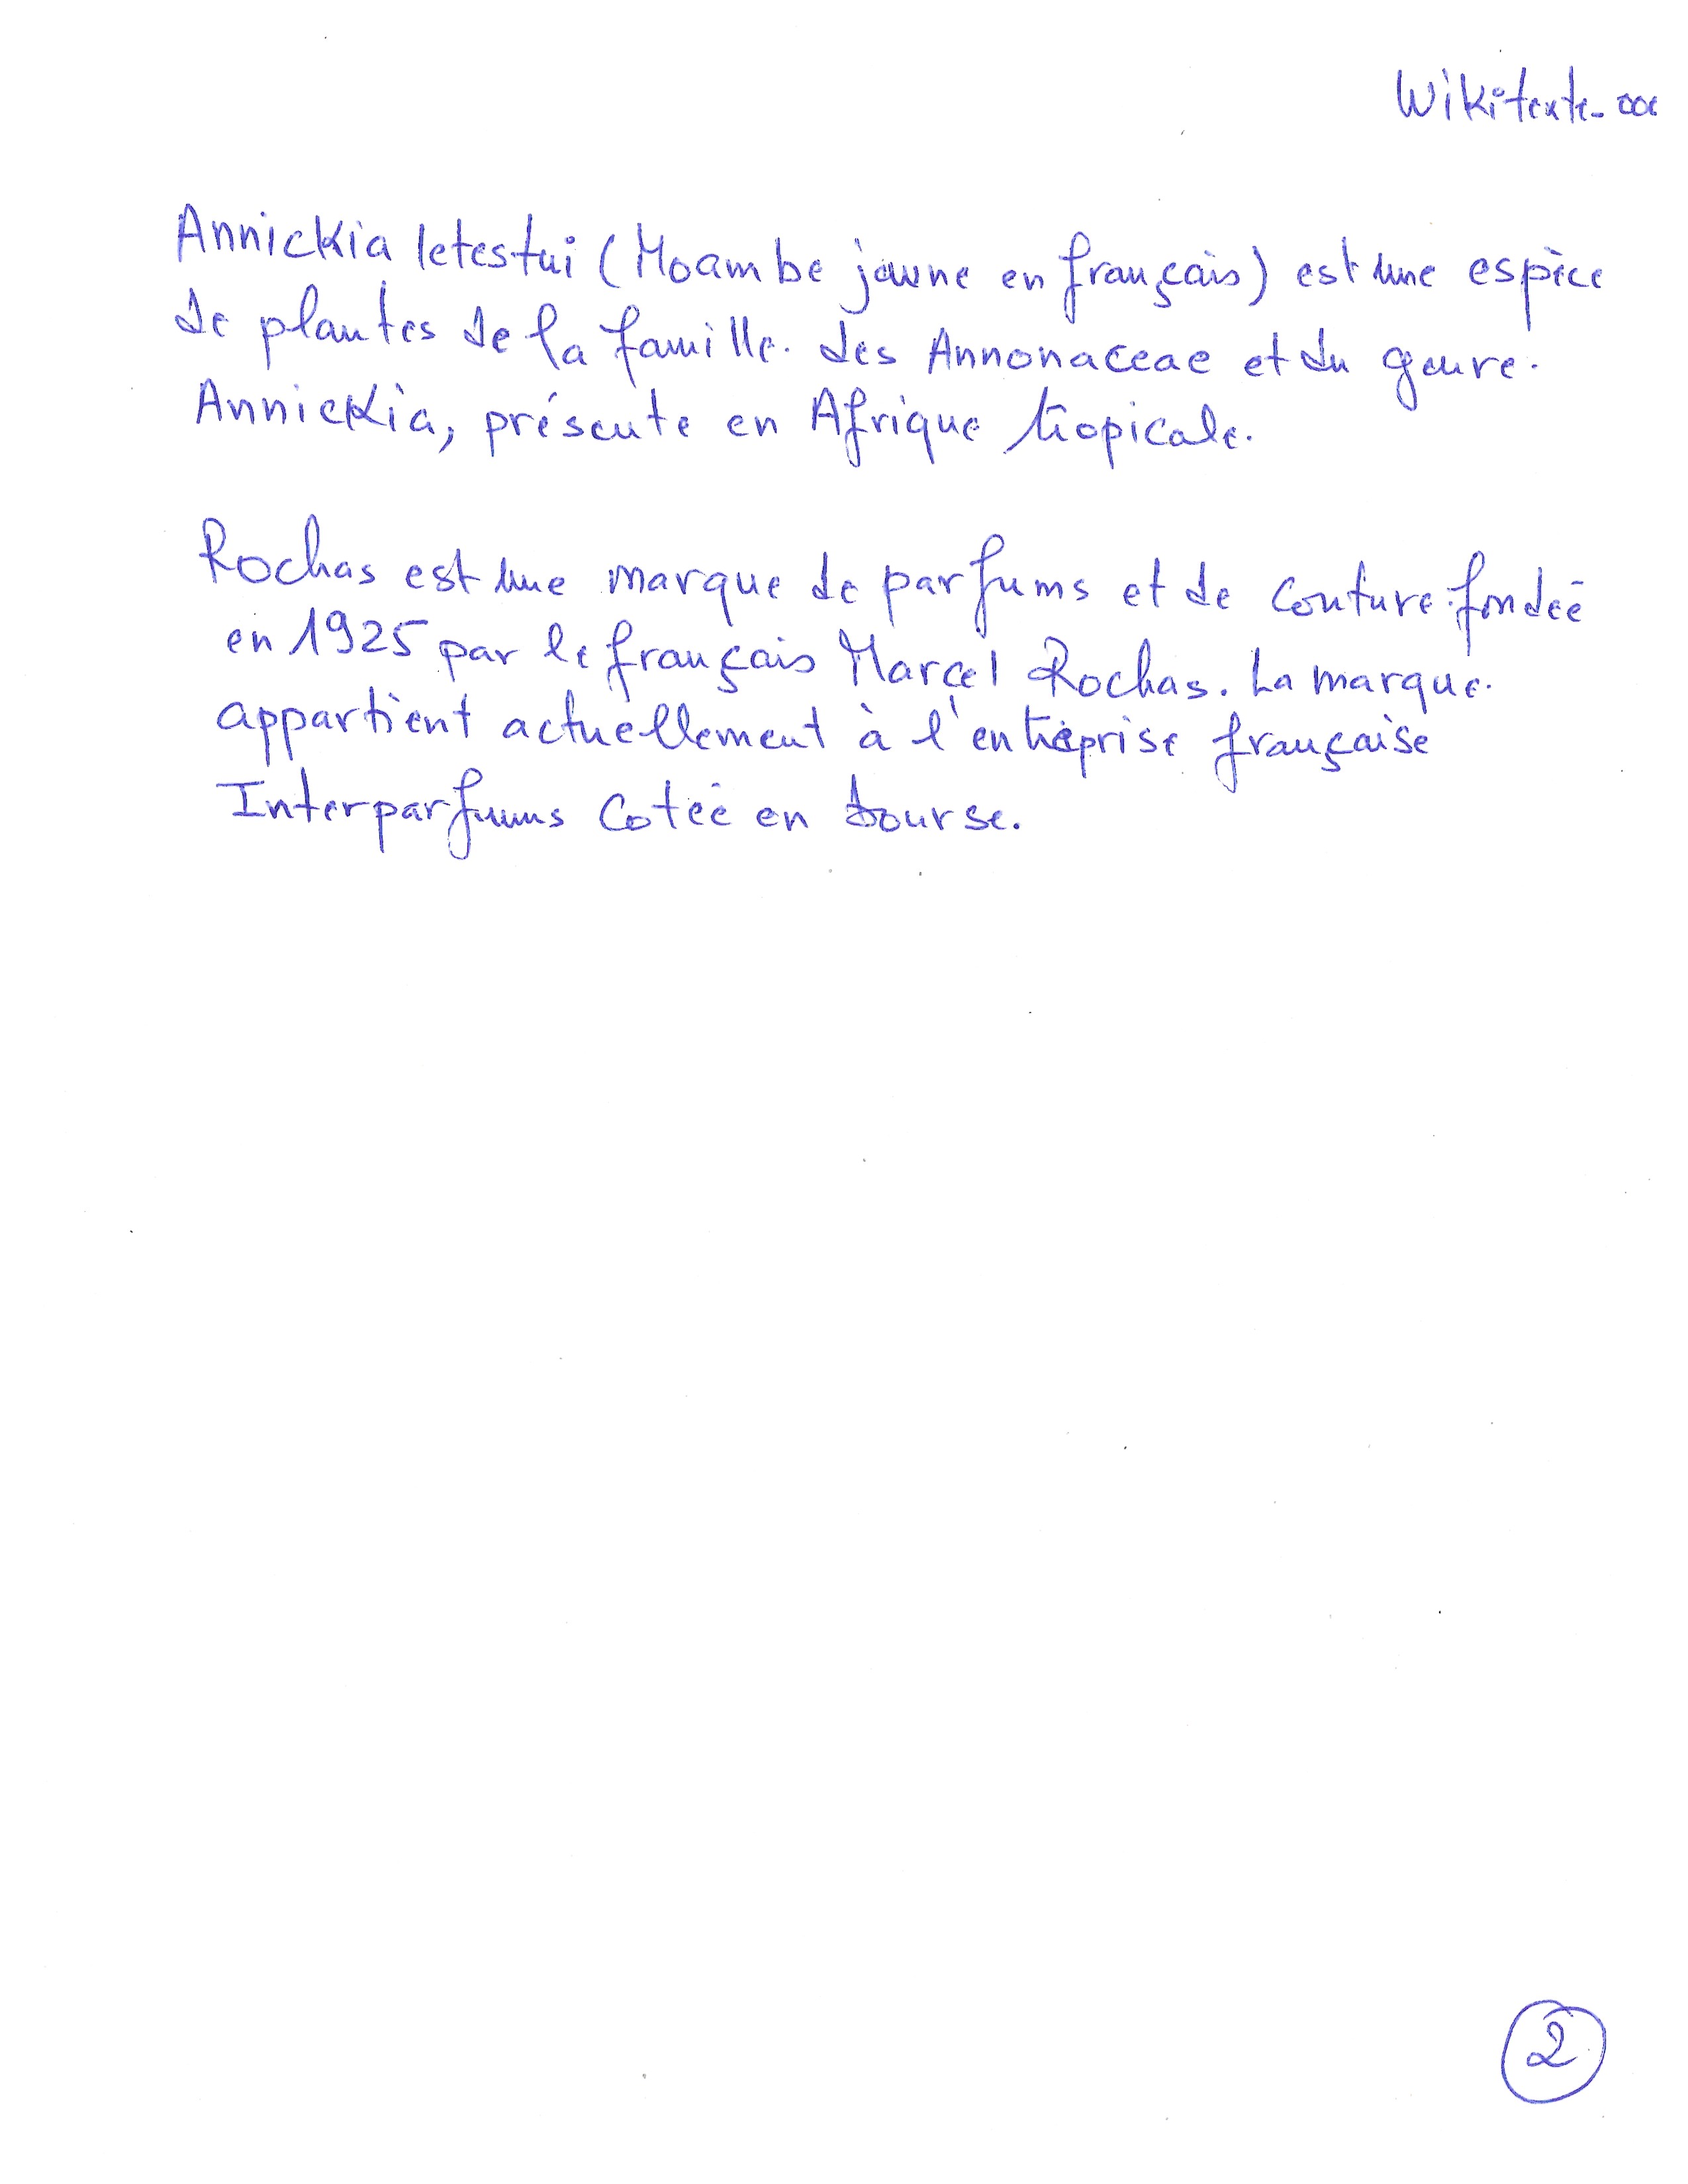 Wikitexte_
Annickia letestui (Moambe jaune en français) est une espèce
de plantes de la famille des Annonaceae et du genre
Annickia, présente en Afrique tropicale.
Rochas est une marque de parfums et de couture fondée
en 1925 par le français Marcel Rochas. La marque
appartient actuellement à l'entreprise française
Interparfums cotée en bourse.
2